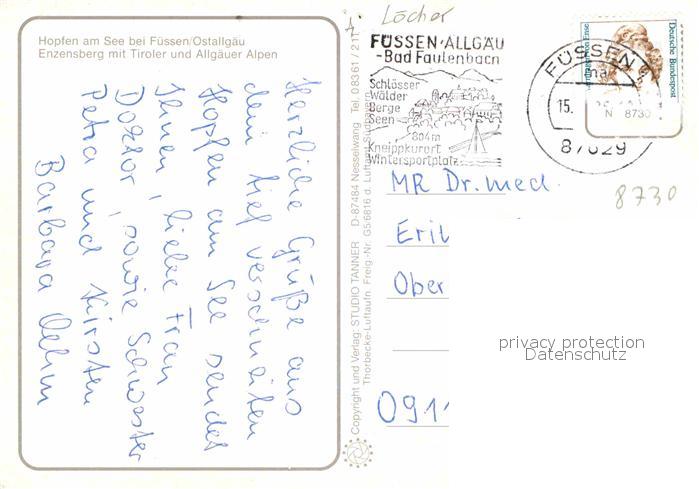 Hopfen am See bei Füssen/Ostallgäu
Enzensberg mit Tiroler und Allgäuer Alpen
Herzliche Grüße aus
dem tief verschneiten
Hopfen am See sendet
Ihnen, liebe Frau
Doktor, sowie Schwester
Petra und Kirsten
Barbara Oehm
Copyright und Verlag: STUDIO TANNER D-87484 Nesselwang Tel. 0 83 61 / 2 11
Thorbecke-Luftaufn Freig.-Nr. G5/6816 d. Luftamt Südbayern
Löcher
FÜSSEN·ALLGÄU
-Bad Faulenbach
Schlösser
Wälder
Berge
Seen
804 m
Kneippkurort
Wintersportplatz
FÜSSEN
ma
15.
87629
Deutsche Bundespost
N 8730
MR Dr. med.
8730
Ober
091
privacy protection
Datenschutz